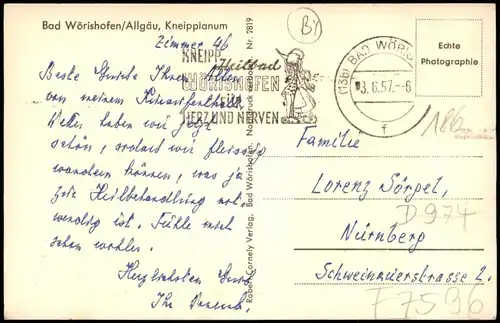 Bad Wörishofen/Allgäu, Kneippianum
Zimmer 46
Beste Grüße Ihnen Allen
von meinem Kuraufenthalt.
Wetter haben wir jetzt
schön, sodaß wir fleissig
wandern können, was ja
zur Heilbehandlung not-
wendig ist. Fühle mich
sehr wohl.
Herzlichsten Gruß
Ihr
KNEIPP
Heilbad
WÖRISHOFEN
FÜR
HERZ UND NERVEN
(13b) BAD WÖRISH
3.6.57.-6
f
Robert Cornely Verlag, Bad Wörishofen. Nachdruck verboten. Nr. 2819
BY
Echte
Photographie
186
Familie
Lorenz Sörgel,
D 974
Nürnberg
Schweinauerstrasse 2.
F 7596